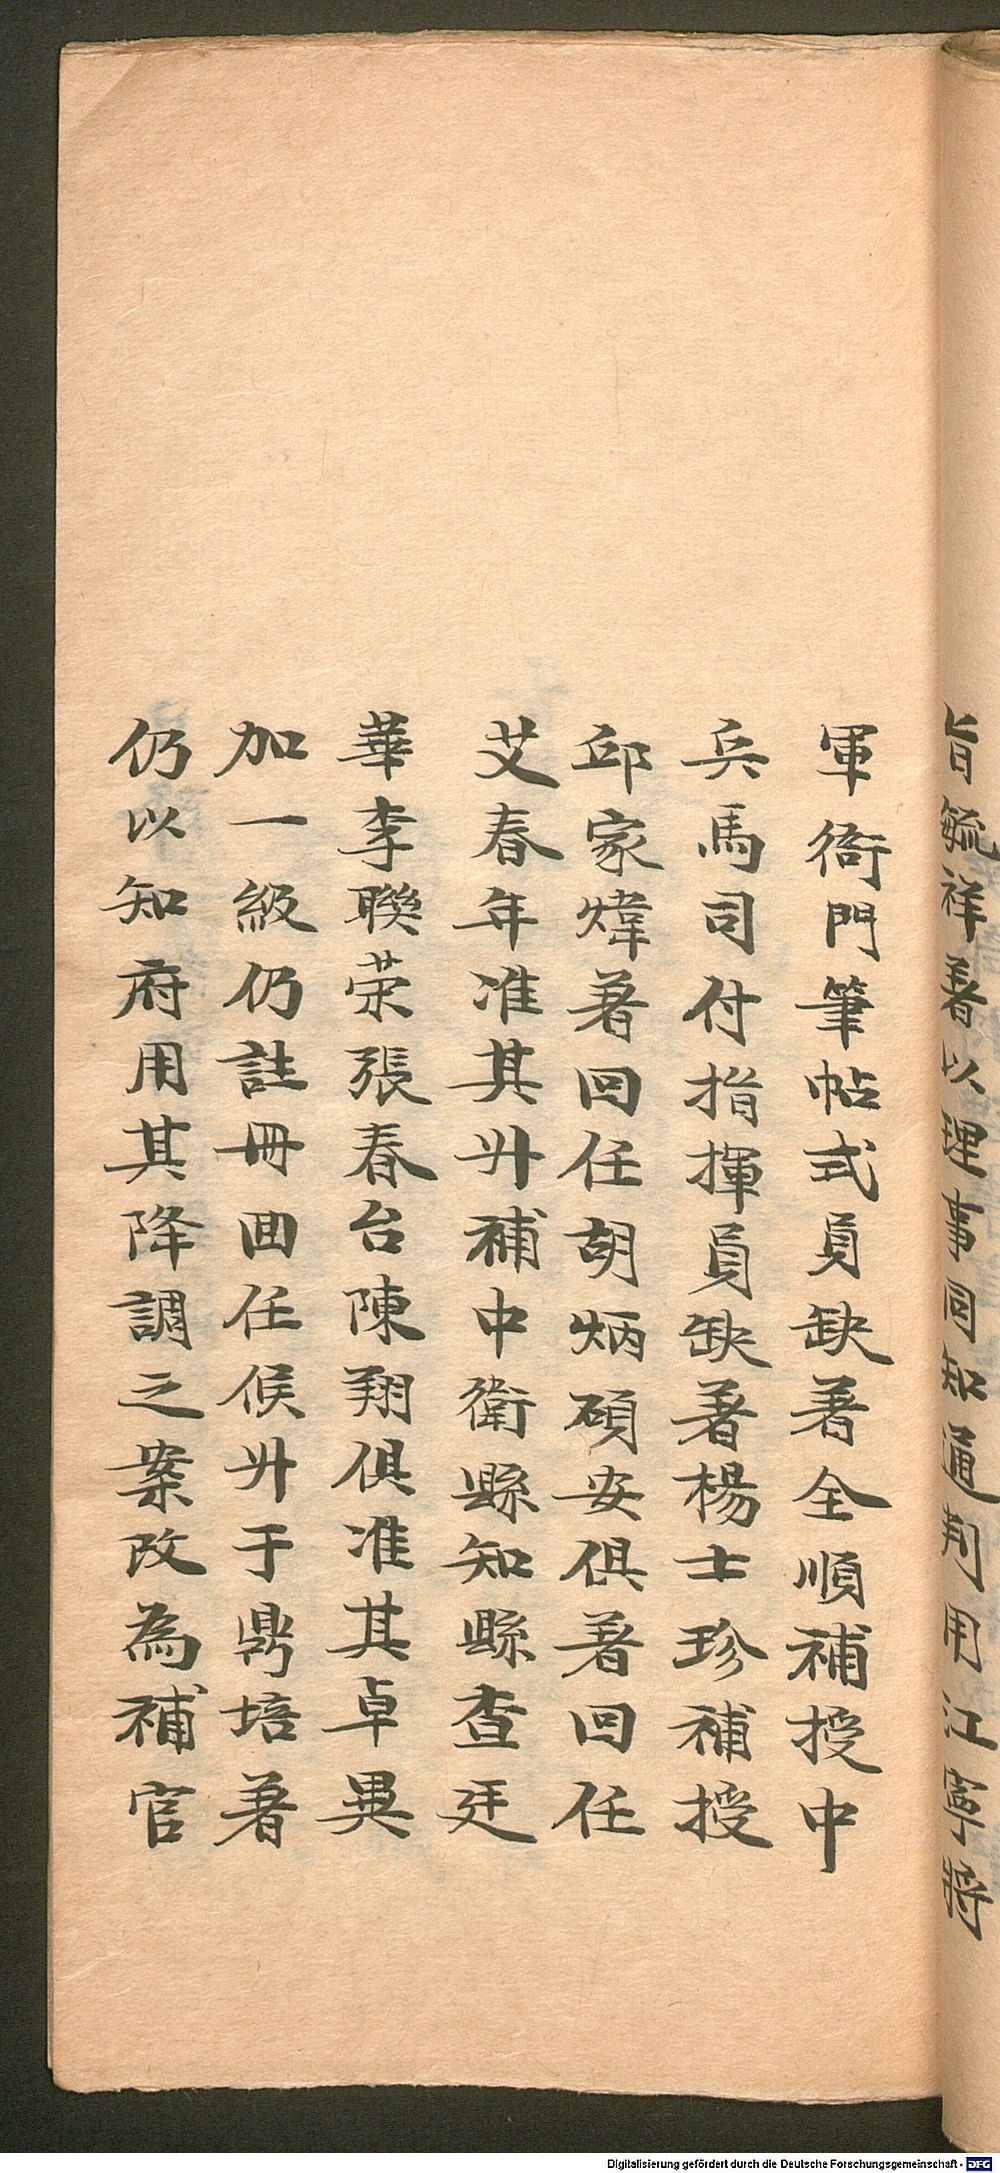 旨毓祥著以理事同知通判用江寧將
軍衙門筆帖式員缺著全順補授中
兵馬司付指揮員缺著楊士珍補授
邱家煒著回任胡炳碩安俱著回任
艾春年准其廾補中衛縣知縣查廷
華李聯荣張春台陳翔俱准其卓異
加一級仍註冊囬任候廾于鹍培著
仍以知府用其降調之案改為補官
Digitalisierung gefördert durch die Deutsche Forschungsgemeinschaft - DFG